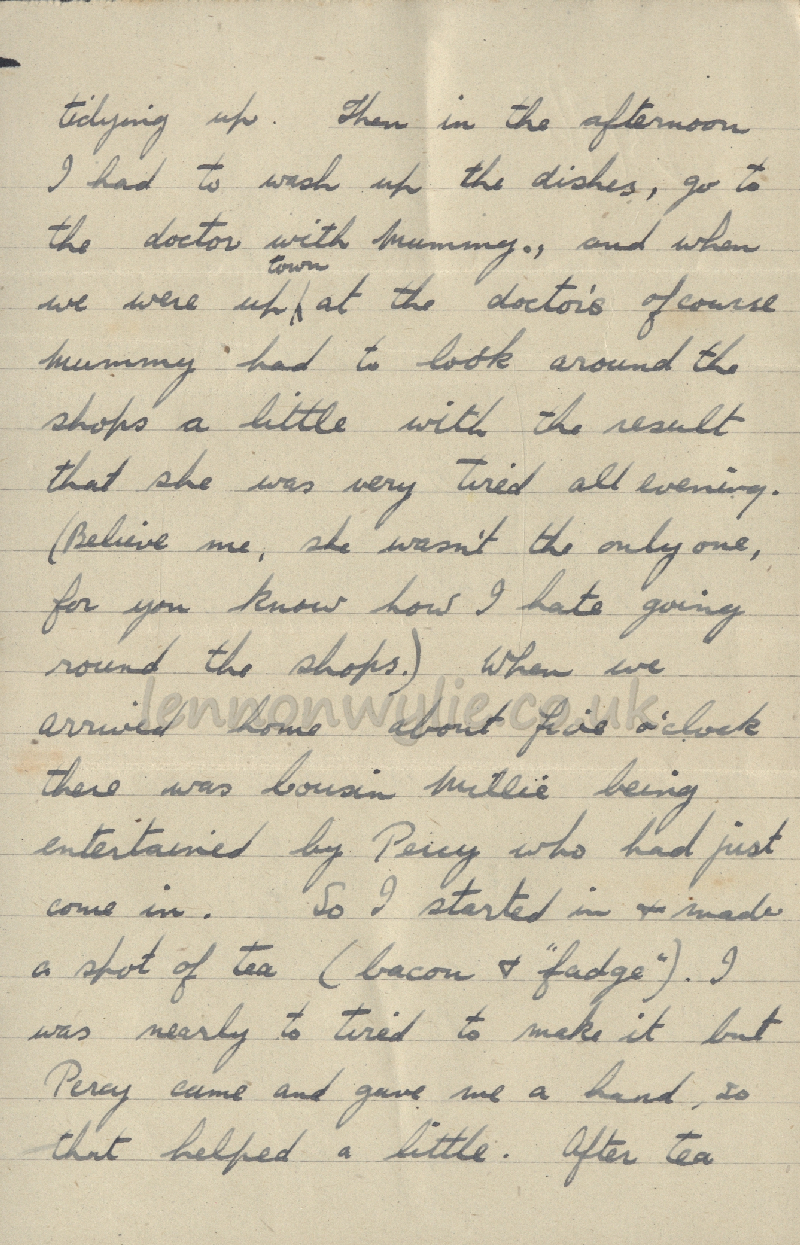 tidying up. Then in the afternoon
I had to wash up the dishes, go to
the doctor with Mummy., and when
town
we were up at the doctor's ofcourse
Mummy had to look around the
shops a little with the result
that she was very tired all evening.
(Believe me, she wasn't the only one,
for you know how I hate going
round the shops.) When we
lennonwylie.co.uk
arrived home about five o'clock
there was Cousin Millie being
entertained by Percy who had just
come in. So I started in & made
a spot of tea (bacon & "fadge"). I
was nearly to tired to make it but
Percy came and gave me a hand, so
that helped a little. After tea